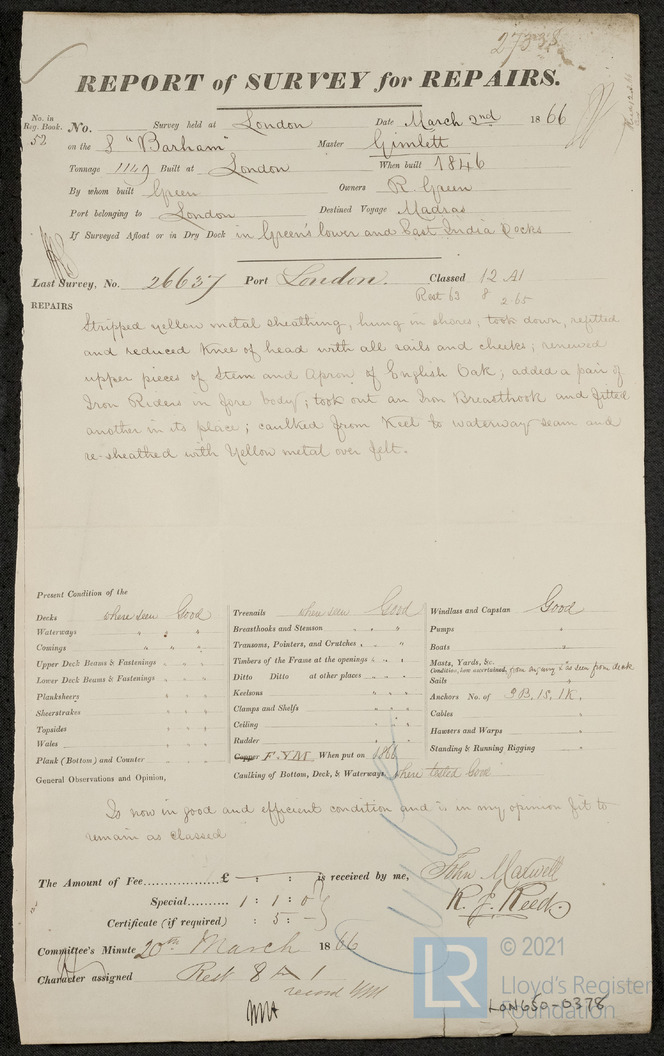 27338
REPORT of SURVEY for REPAIRS.
No. in Reg. Book. 52
No. Survey held at London Date March 2nd 1866
on the S "Barham" Master Gimlett
Tonnage 1149 Built at London When built 1846
By whom built Green Owners R Green
Port belonging to London Destined Voyage Madras
If Surveyed Afloat or in Dry Dock in Green's lower and East India Docks
Last Survey, No. 26637 Port London. Classed 12 A1
Rest 63 8 2.65
REPAIRS
Stripped yellow metal sheathing, hung in shores; took down, refitted
and reduced Knee of head with all rails and cheeks; renewed
upper pieces of Stem and Apron of English Oak; added a pair of
Iron Riders in fore body; took out an Iron Breasthook and fitted
another in its place; caulked from Keel to waterway seam and
re-sheathed with Yellow metal over felt.
Present Condition of the
Decks where seen Good
Waterways " " "
Comings " " "
Upper Deck Beams & Fastenings " " "
Lower Deck Beams & Fastenings " " "
Planksheers " " "
Sheerstrakes " " "
Topsides " " "
Wales " " "
Plank (Bottom) and Counter " " "
General Observations and Opinion,
Treenails where seen Good
Breasthooks and Stemson " " "
Transoms, Pointers, and Crutches " " "
Timbers of the Frame at the openings " " "
Ditto Ditto at other places " " "
Keelsons " " "
Clamps and Shelfs " " "
Ceiling " " "
Rudder " " "
Copper F.Y.M. When put on 1866
Caulking of Bottom, Deck, & Waterways where tested Good
Windlass and Capstan Good
Pumps "
Boats "
Masts, Yards, &c.
Condition, how ascertained, as seen from deck
Sails "
Anchors No. of 3B, 1S, 1K.
Cables "
Hawsers and Warps "
Standing & Running Rigging "
Is now in good and efficient condition and is in my opinion fit to
remain as classed
The Amount of Fee £ : : is received by me, John Maxwell
Special 1 : 1 : 0 R. J. Reed.
Certificate (if required) : 5 : -
Committee's Minute 20th March 1866
Character assigned Rest 8 A 1
record YM
© 2021
LR Lloyd's Register
Foundation
LON650-0378